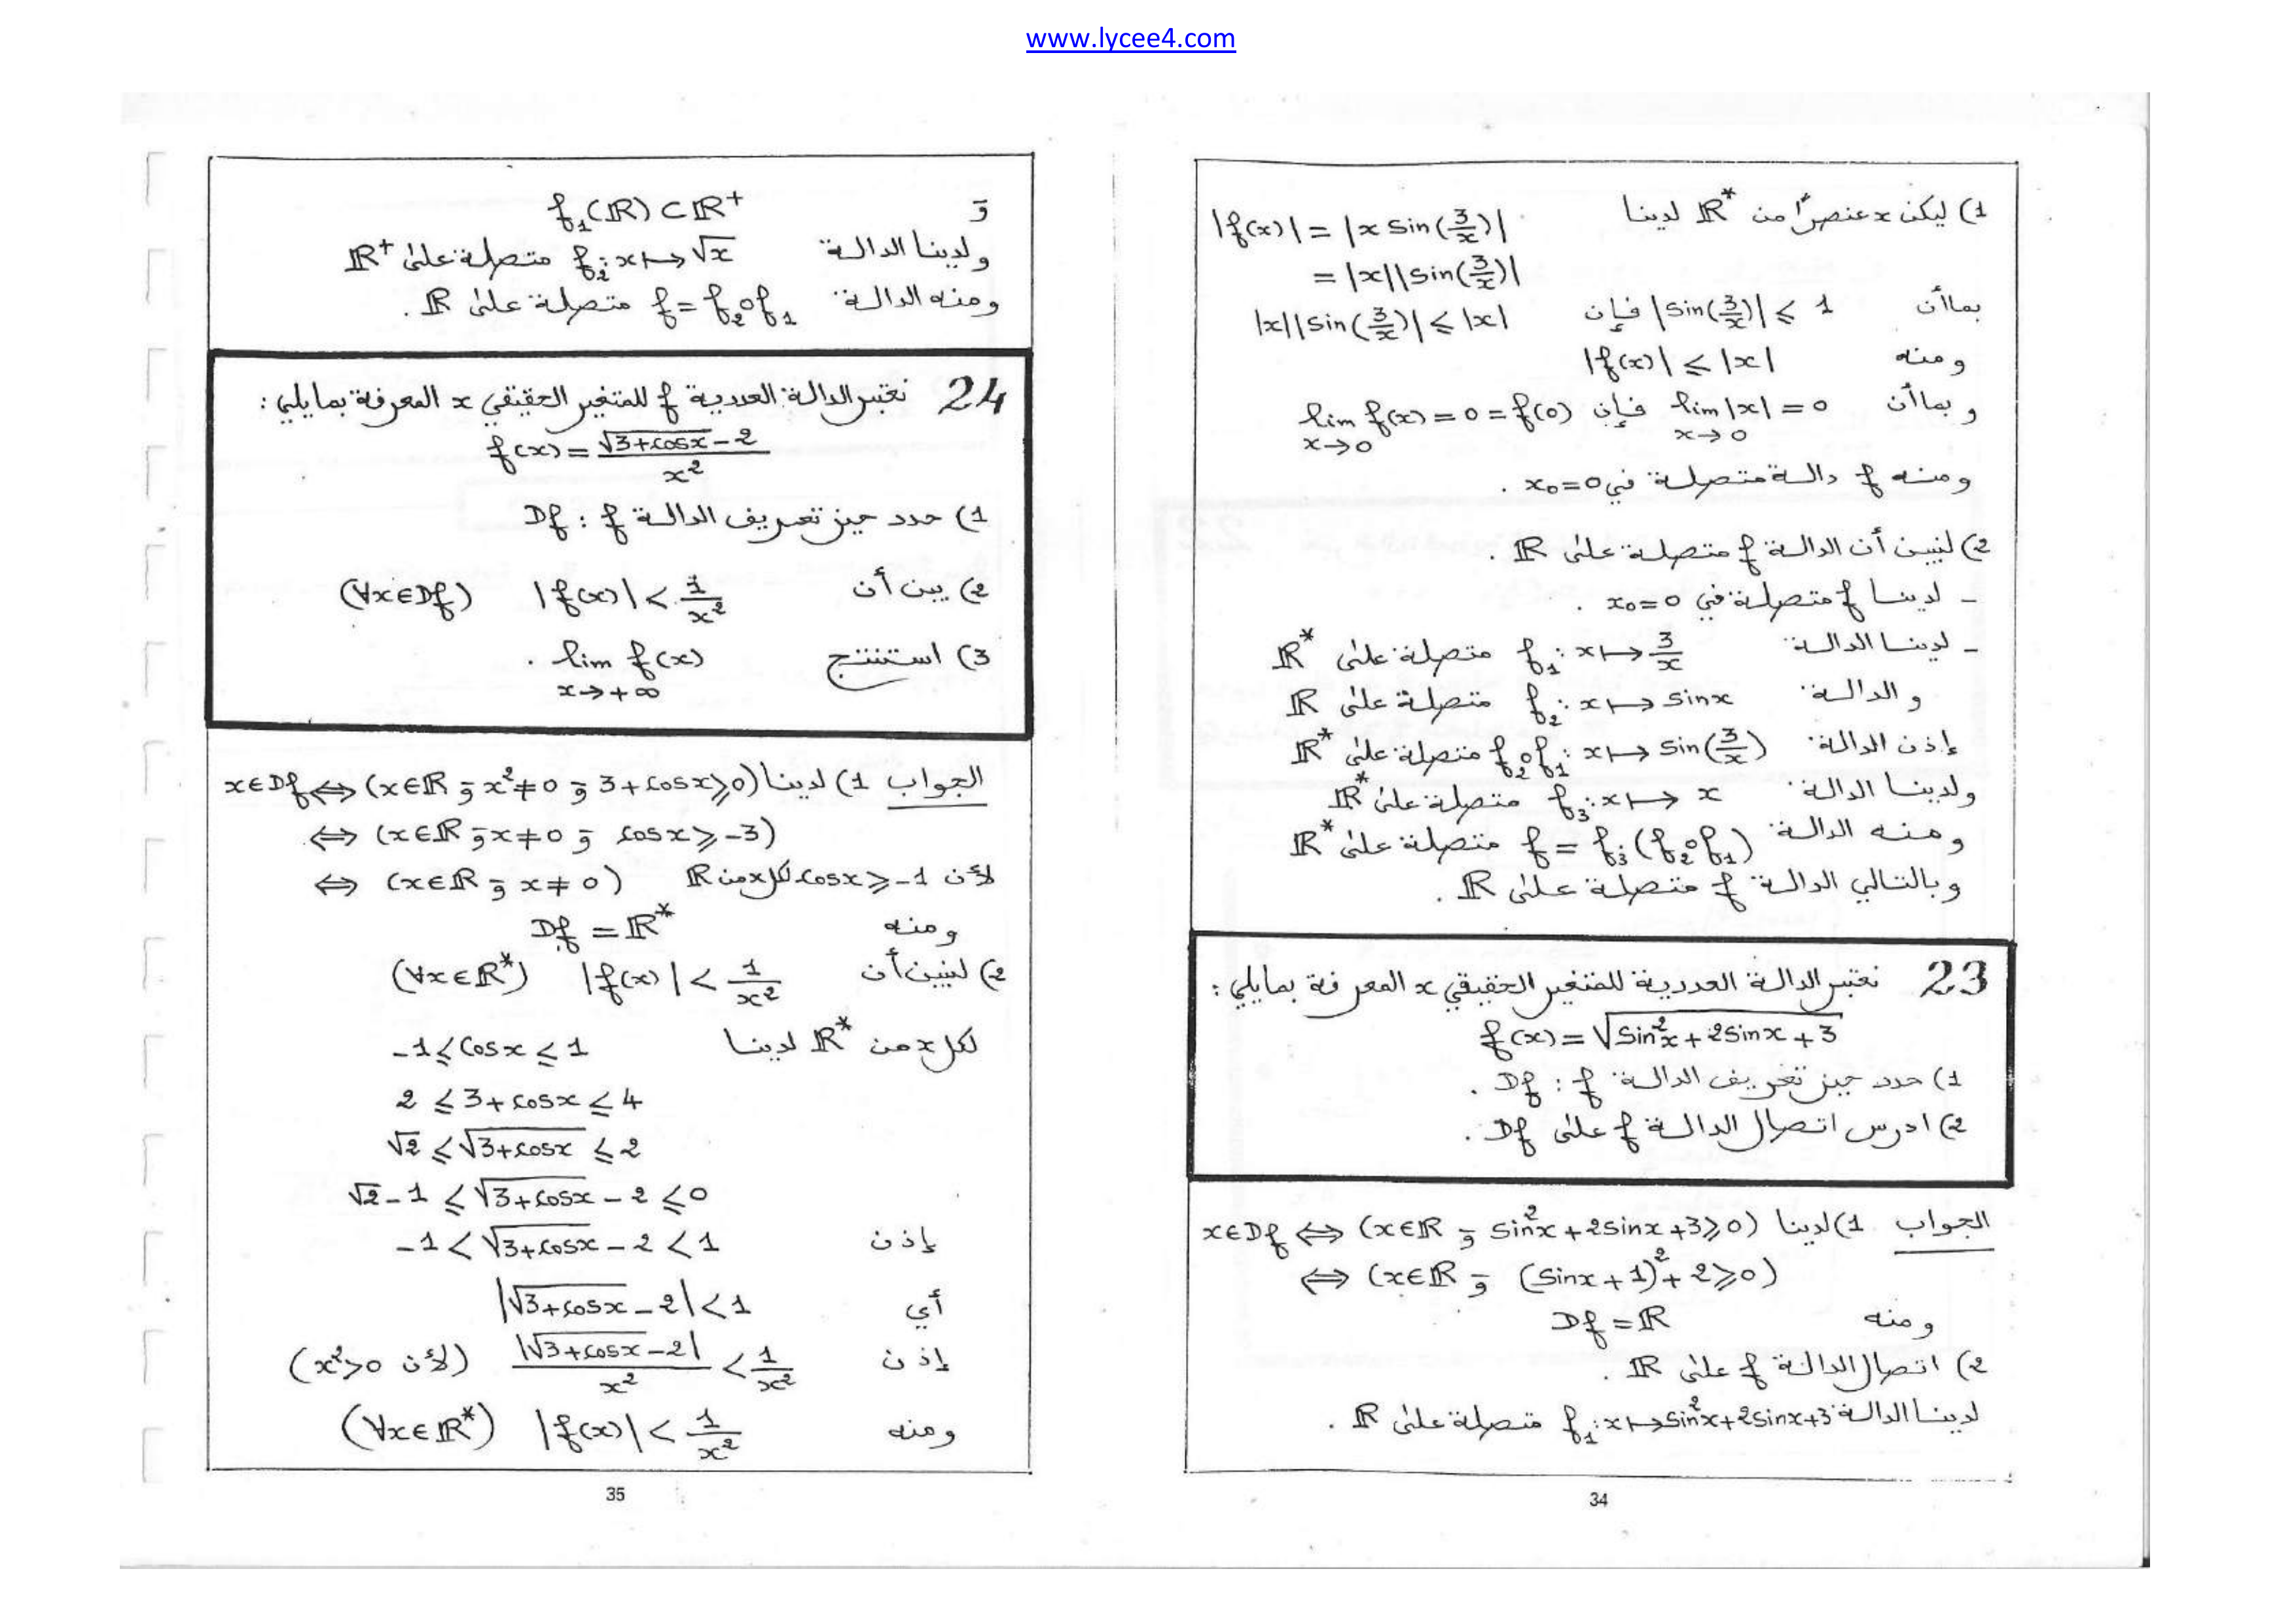 www.lycee4.com
1) ليكن x عنصرًا من ℝ* لدينا |f(x)| = |x sin(3/x)|
= |x||sin(3/x)|
بما أن |sin(3/x)| ⩽ 1 فإن |x||sin(3/x)| ⩽ |x|
ومنه |f(x)| ⩽ |x|
وبما أن lim |x| = 0 فإن lim f(x) = 0 = f(0)
x→0 x→0
ومنه f دالة متصلة في x₀=0 .
2) لنبين أن الدالة f متصلة على ℝ .
- لدينا f متصلة في x₀=0 .
- لدينا الدالة f₁: x↦3/x متصلة على ℝ*
والدالة f₂: x↦sinx متصلة على ℝ
إذن الدالة f₂∘f₁: x↦sin(3/x) متصلة على ℝ*
ولدينا الدالة f₃: x↦x متصلة على ℝ*
ومنه الدالة f = f₃.(f₂∘f₁) متصلة على ℝ*
وبالتالي الدالة f متصلة على ℝ .
23 نعتبر الدالة العددية للمتغير الحقيقي x المعرفة بمايلي :
f(x) = √(sin²x + 2sinx + 3)
1) حدد حيز تعريف الدالة f : Df .
2) ادرس اتصال الدالة f على Df .
الجواب 1) لدينا x∈Df ⇔ (x∈ℝ و sin²x + 2sinx + 3 ⩾ 0)
⇔ (x∈ℝ و (sinx + 1)² + 2 ⩾ 0)
ومنه Df = ℝ
2) اتصال الدالة f على ℝ .
لدينا الدالة f₁: x↦sin²x+2sinx+3 متصلة على ℝ .
34
و f₁(ℝ) ⊂ ℝ⁺
ولدينا الدالة f₂: x↦√x متصلة على ℝ⁺
ومنه الدالة f = f₂∘f₁ متصلة على ℝ .
24 نعتبر الدالة العددية f للمتغير الحقيقي x المعرفة بمايلي :
f(x) = (√(3+cosx) - 2)/x²
1) حدد حيز تعريف الدالة f : Df
2) بين أن |f(x)| < 1/x² (∀x∈Df)
3) استنتج lim f(x) .
x→+∞
الجواب 1) لدينا x∈Df ⇔ (x∈ℝ و x²≠0 و 3+cosx⩾0)
⇔ (x∈ℝ و x≠0 و cosx ⩾ -3)
⇔ (x∈ℝ و x≠0) لأن cosx ⩾ -1 لكل x من ℝ
ومنه Df = ℝ*
2) لنبين أن |f(x)| < 1/x² (∀x∈ℝ*)
لكل x من ℝ* لدينا -1 ⩽ cosx ⩽ 1
2 ⩽ 3+cosx ⩽ 4
√2 ⩽ √(3+cosx) ⩽ 2
√2 - 1 ⩽ √(3+cosx) - 2 ⩽ 0
إذن -1 < √(3+cosx) - 2 < 1
أي |√(3+cosx) - 2| < 1
إذن |√(3+cosx) - 2|/x² < 1/x² (لأن x²>0)
ومنه |f(x)| < 1/x² (∀x∈ℝ*)
35